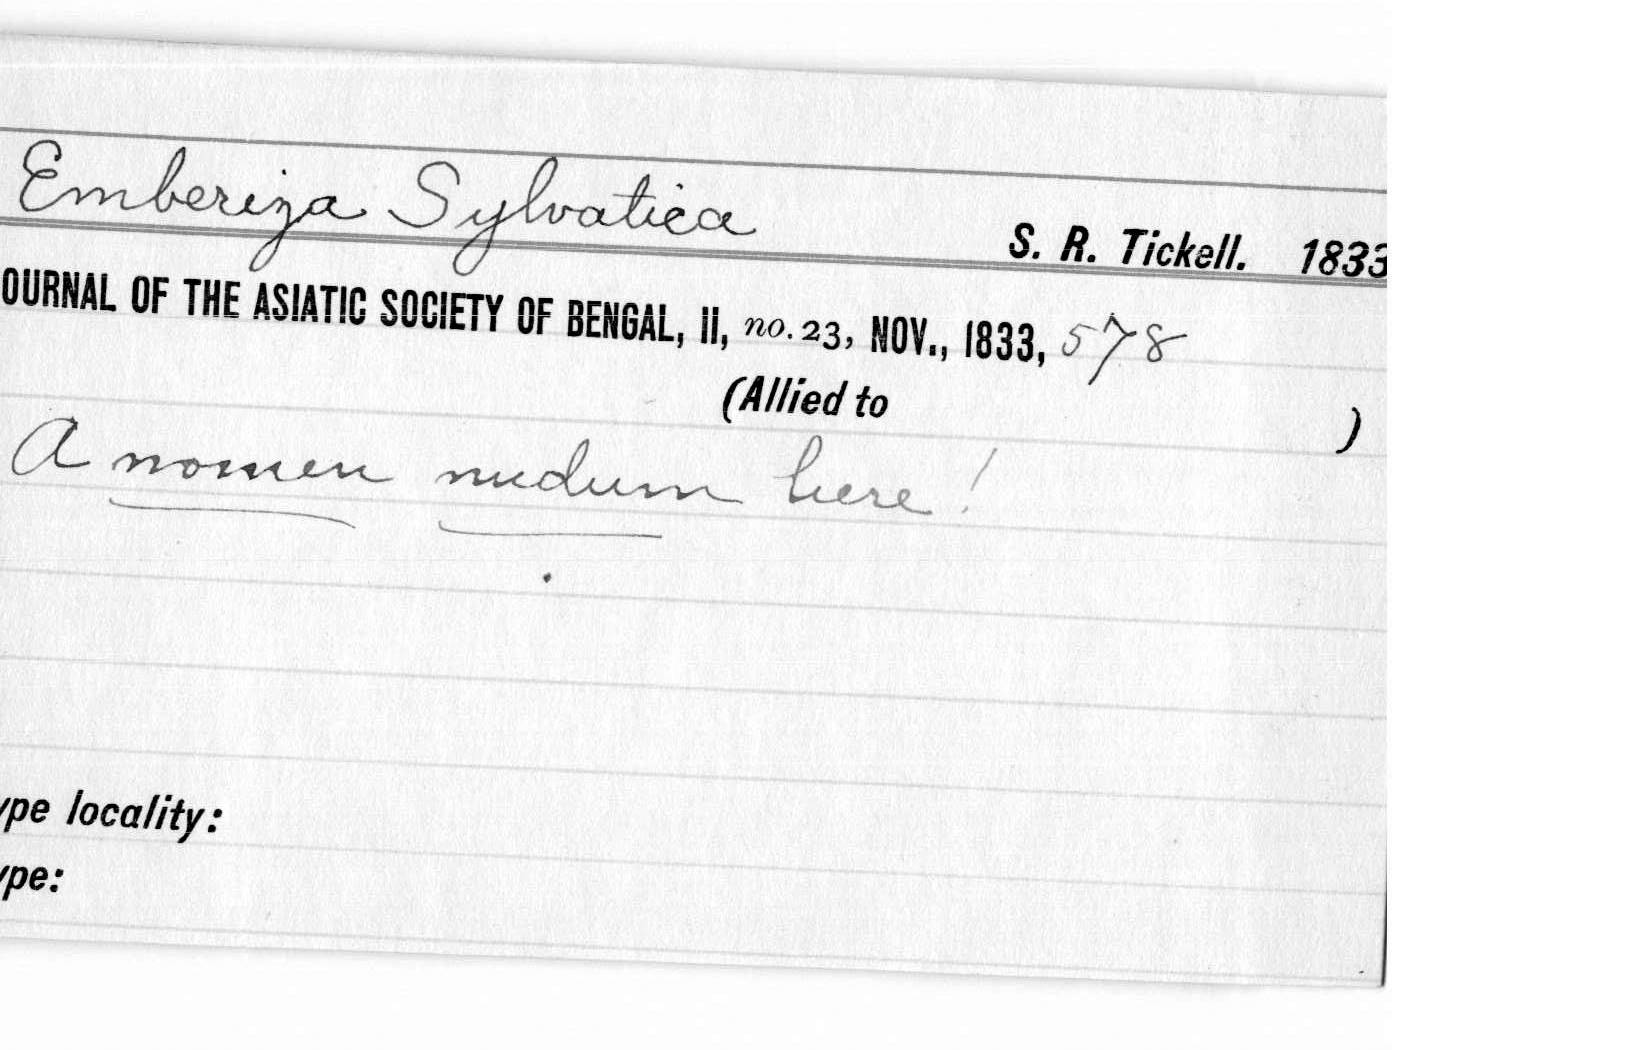 Emberiza Sylvatica
S. R. Tickell. 1833
OURNAL OF THE ASIATIC SOCIETY OF BENGAL, II, no. 23, NOV., 1833, 578
(Allied to )
A nomen nudum here!
ype locality:
ype: